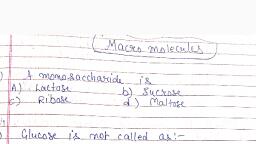 Macro molecules
A monosaccharide is
A) Lactose b) Sucrose
c) Ribose d) Maltose
Glucose is not called as:-